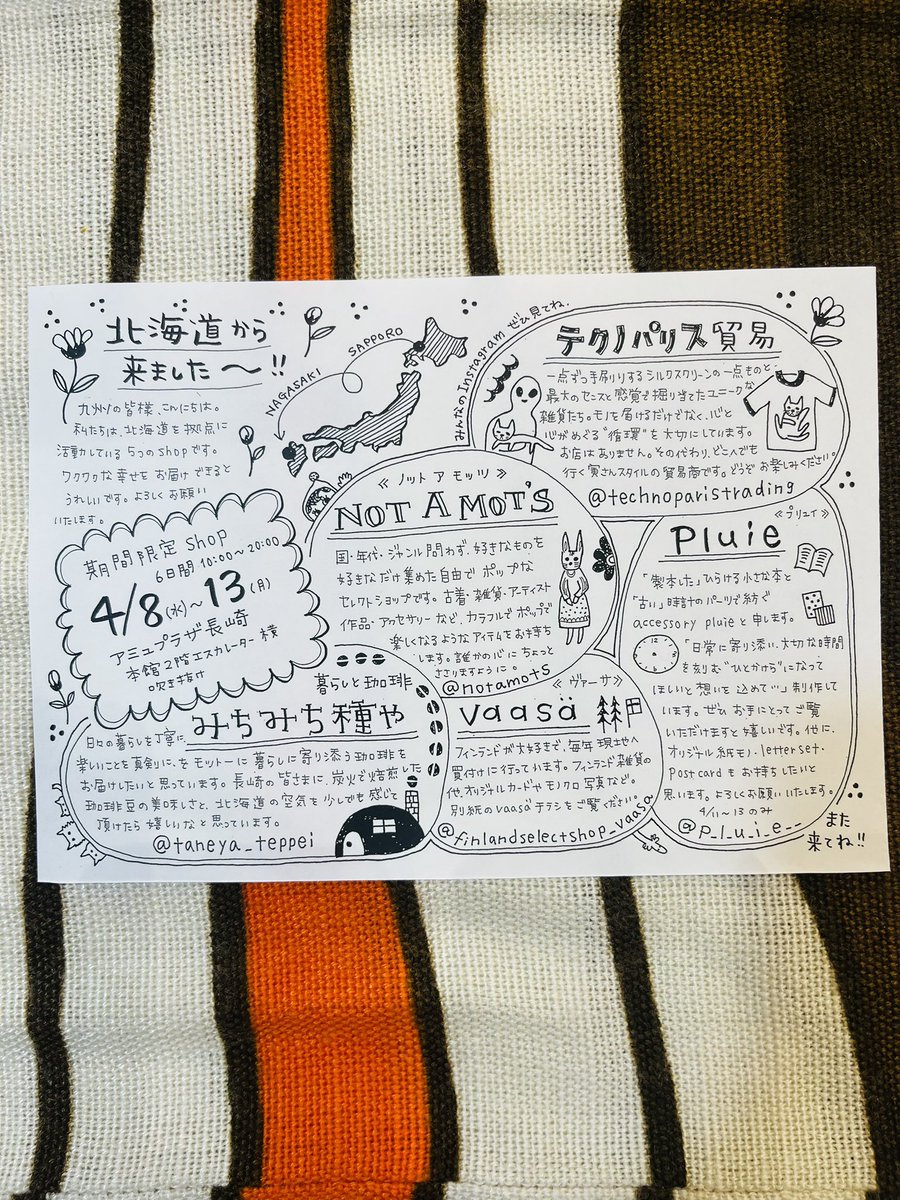 北海道から
来ました〜!!
九州の皆様、こんにちは。
私たちは、北海道を拠点に
活動している5つのshopです。
ワクワクな幸せをお届けできると
うれしいです。よろしくお願い
いたします。
NAGASAKI
SAPPORO
期間限定 Shop
6日間 10:00〜20:00
4/8(水)〜13(月)
アミュプラザ長崎
本館2階エスカレーター横
吹き抜け
みんなのInstagramぜひ見てね.
テクノパリス貿易
一点ずつ手刷りするシルクスクリーンの一点ものと、
最大のセンスと感覚で掘り当てたユニークな
雑貨たち。モノを届けるだけでなく、心と
心がめぐる"循環"を大切にしています。
お店はありません。その代わり、どこへでも
行く寅さんスタイルの貿易商です。どうぞお楽しみください。
@technoparistrading
≪ノット ア モッツ≫
NOT A MOT'S
国・年代・ジャンル問わず、好きなものを
好きなだけ集めた自由でポップな
セレクトショップです。古着・雑貨・アーティスト
作品・アクセサリーなど、カラフルでポップで
楽しくなるようなアイテムをお持ち
します。誰かの心にちょっと
ささりますように。
@notamots
≪プリュイ≫
Pluie
「製本した」ひらける小さな本と
「古い」時計のパーツで紡ぐ
accessory pluieと申します。
「日常に寄り添い、大切な時間
を刻む"ひとかけら"になって
ほしいと想いを込めて…」制作して
います。ぜひお手にとってご覧
いただけますと嬉しいです。他に、
オリジナル紙モノ、letterset・
Postcardもお持ちしたいと
思います。よろしくお願いいたします。
4/11〜13のみ
@p_l_u_i_e_-
暮らしと珈琲
みちみち種や
日々の暮らしを丁寧に、
楽しいことを真剣に、をモットーに暮らしに寄り添う珈琲を
お届けしたいと思っています。長崎の皆さまに、炭火で焙煎した
珈琲豆の美味しさと、北海道の空気を少しでも感じて
頂けたら嬉しいなと思っています。
@taneya_teppei
≪ヴァーサ≫
vaasa
フィンランドが大好きで、毎年現地へ
買付けに行っています。フィンランド雑貨の
他、オリジナルカードやモノクロ写真など。
別紙のvaasaチラシをご覧ください。
@finlandselectshop_vaasa
また
来てね!!